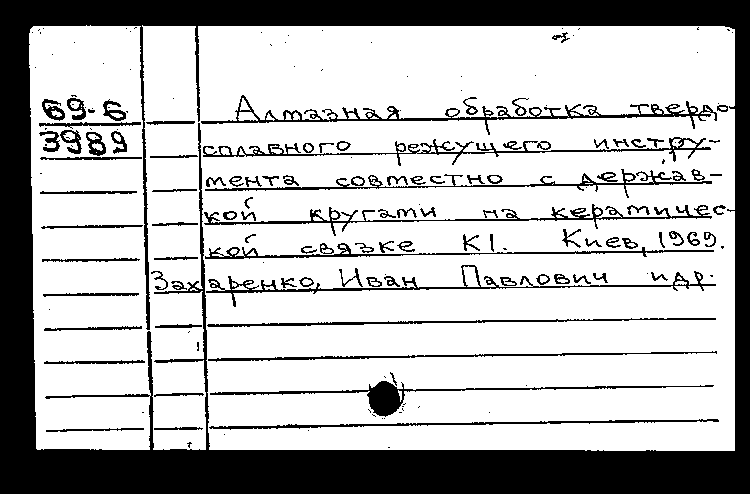 69-6
3989
Алмазная обработка твердо-
сплавного режущего инстру-
мента совместно с державкой
кой кругами на керамичес-
кой связке К1. Киев, 1969.
Захаренко, Иван Павлович и др.